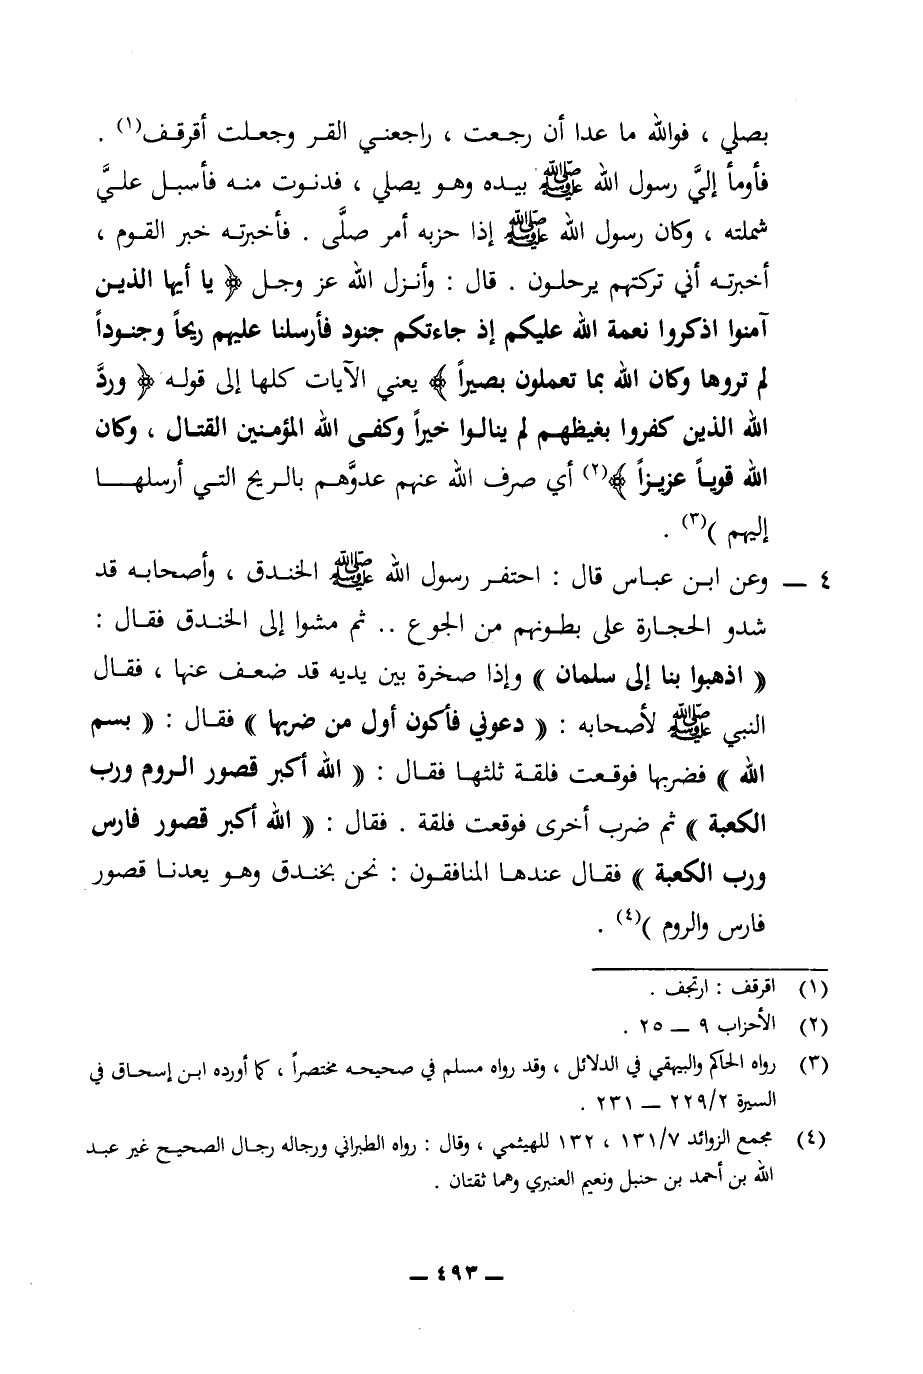 يصلي ، فوالله ما عدا أن رجعت ، راجعني القر وجعلت أقرقف(١) .
فأومأ إليَّ رسول الله ﷺ بيده وهو يصلي ، فدنوت منه فأسبل عليَّ
شملته ، وكان رسول الله ﷺ إذا حزبه أمر صلَّى . فأخبرته خبر القوم ،
أخبرته أني تركتهم يرحلون . قال : وأنزل الله عز وجل ﴿ يا أيها الذين
آمنوا اذكروا نعمة الله عليكم إذ جاءتكم جنود فأرسلنا عليهم ريحاً وجنوداً
لم تروها وكان الله بما تعملون بصيراً ﴾ يعني الآيات كلها إلى قوله ﴿ وردَّ
الله الذين كفروا بغيظهم لم ينالوا خيراً وكفى الله المؤمنين القتال ، وكان
الله قوياً عزيزاً ﴾(٢) أي صرف الله عنهم عدوَّهم بالريح التي أرسلها
إليهم )(٣) .
٤ – وعن ابن عباس قال : احتفر رسول الله ﷺ الخندق ، وأصحابه قد
شدو الحجارة على بطونهم من الجوع .. ثم مشوا إلى الخندق فقال :
« اذهبوا بنا إلى سلمان » وإذا صخرة بين يديه قد ضعف عنها ، فقال
النبي ﷺ لأصحابه : « دعوني فأكون أول من ضربها » فقال : « بسم
الله » فضربها فوقعت فلقة ثلثها فقال : « الله أكبر قصور الروم ورب
الكعبة » ثم ضرب أخرى فوقعت فلقة . فقال : « الله أكبر قصور فارس
ورب الكعبة » فقال عندها المنافقون : نحن بخندق وهو يعدنا قصور
فارس والروم )(٤) .
(١) اقرقف : ارتجف .
(٢) الأحزاب ٩ – ٢٥ .
(٣) رواه الحاكم والبيهقي في الدلائل ، وقد رواه مسلم في صحيحه مختصراً ، كما أورده ابن إسحاق في
السيرة ٢٢٩/٢ – ٢٣١ .
(٤) مجمع الزوائد ١٣١/٧ ، ١٣٢ للهيثمي ، وقال : رواه الطبراني ورجاله رجال الصحيح غير عبد
الله بن أحمد بن حنبل ونعيم العنبري وهما ثقتان .
– ٤٩٣ –